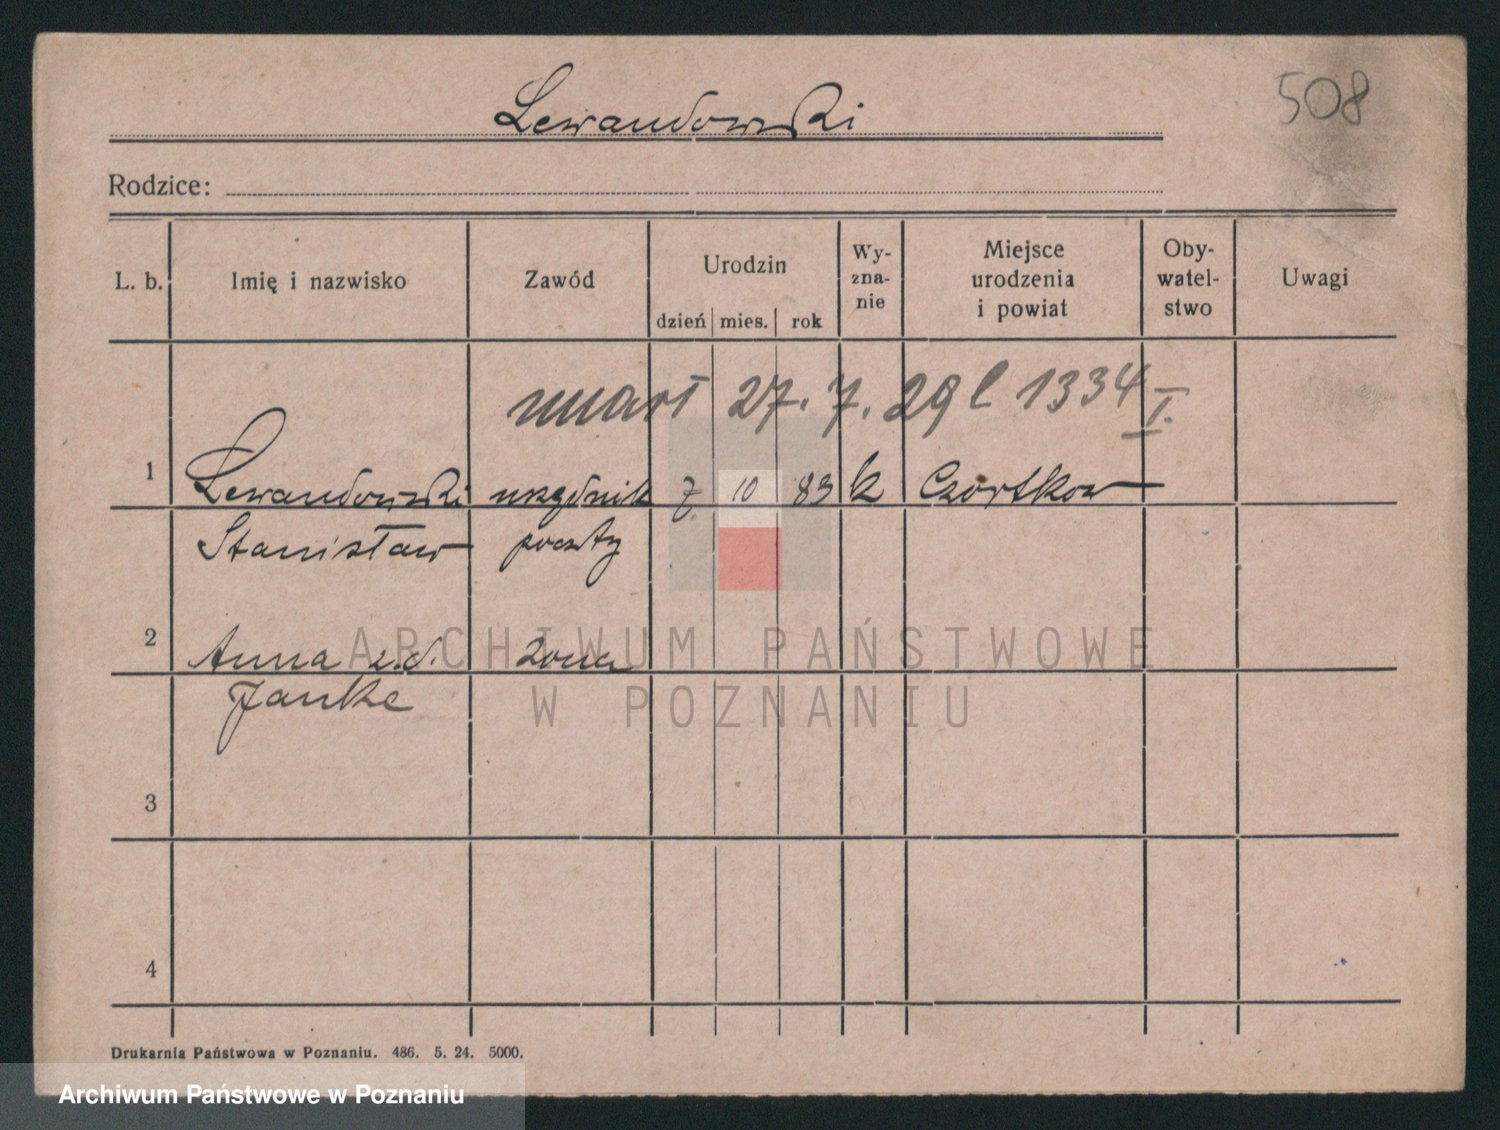 Lewandowski
508
Rodzice:
L. b. Imię i nazwisko Zawód Urodzin dzień mies. rok Wy- zna- nie Miejsce urodzenia i powiat Oby- watel- stwo Uwagi
umarł 27. 7. 29 l 1334 I.
1 Lewandowski urzędnik 7 10 83 k Czortkow
Stanisław poczty
2 Anna z.d. żona
Janke
3
4
Drukarnia Państwowa w Poznaniu. 486. 5. 24. 5000.
ARCHIWUM PAŃSTWOWE
W POZNANIU
Archiwum Państwowe w Poznaniu